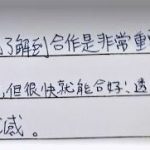 了解到合作是非常重
但很快就能合好;透
感。